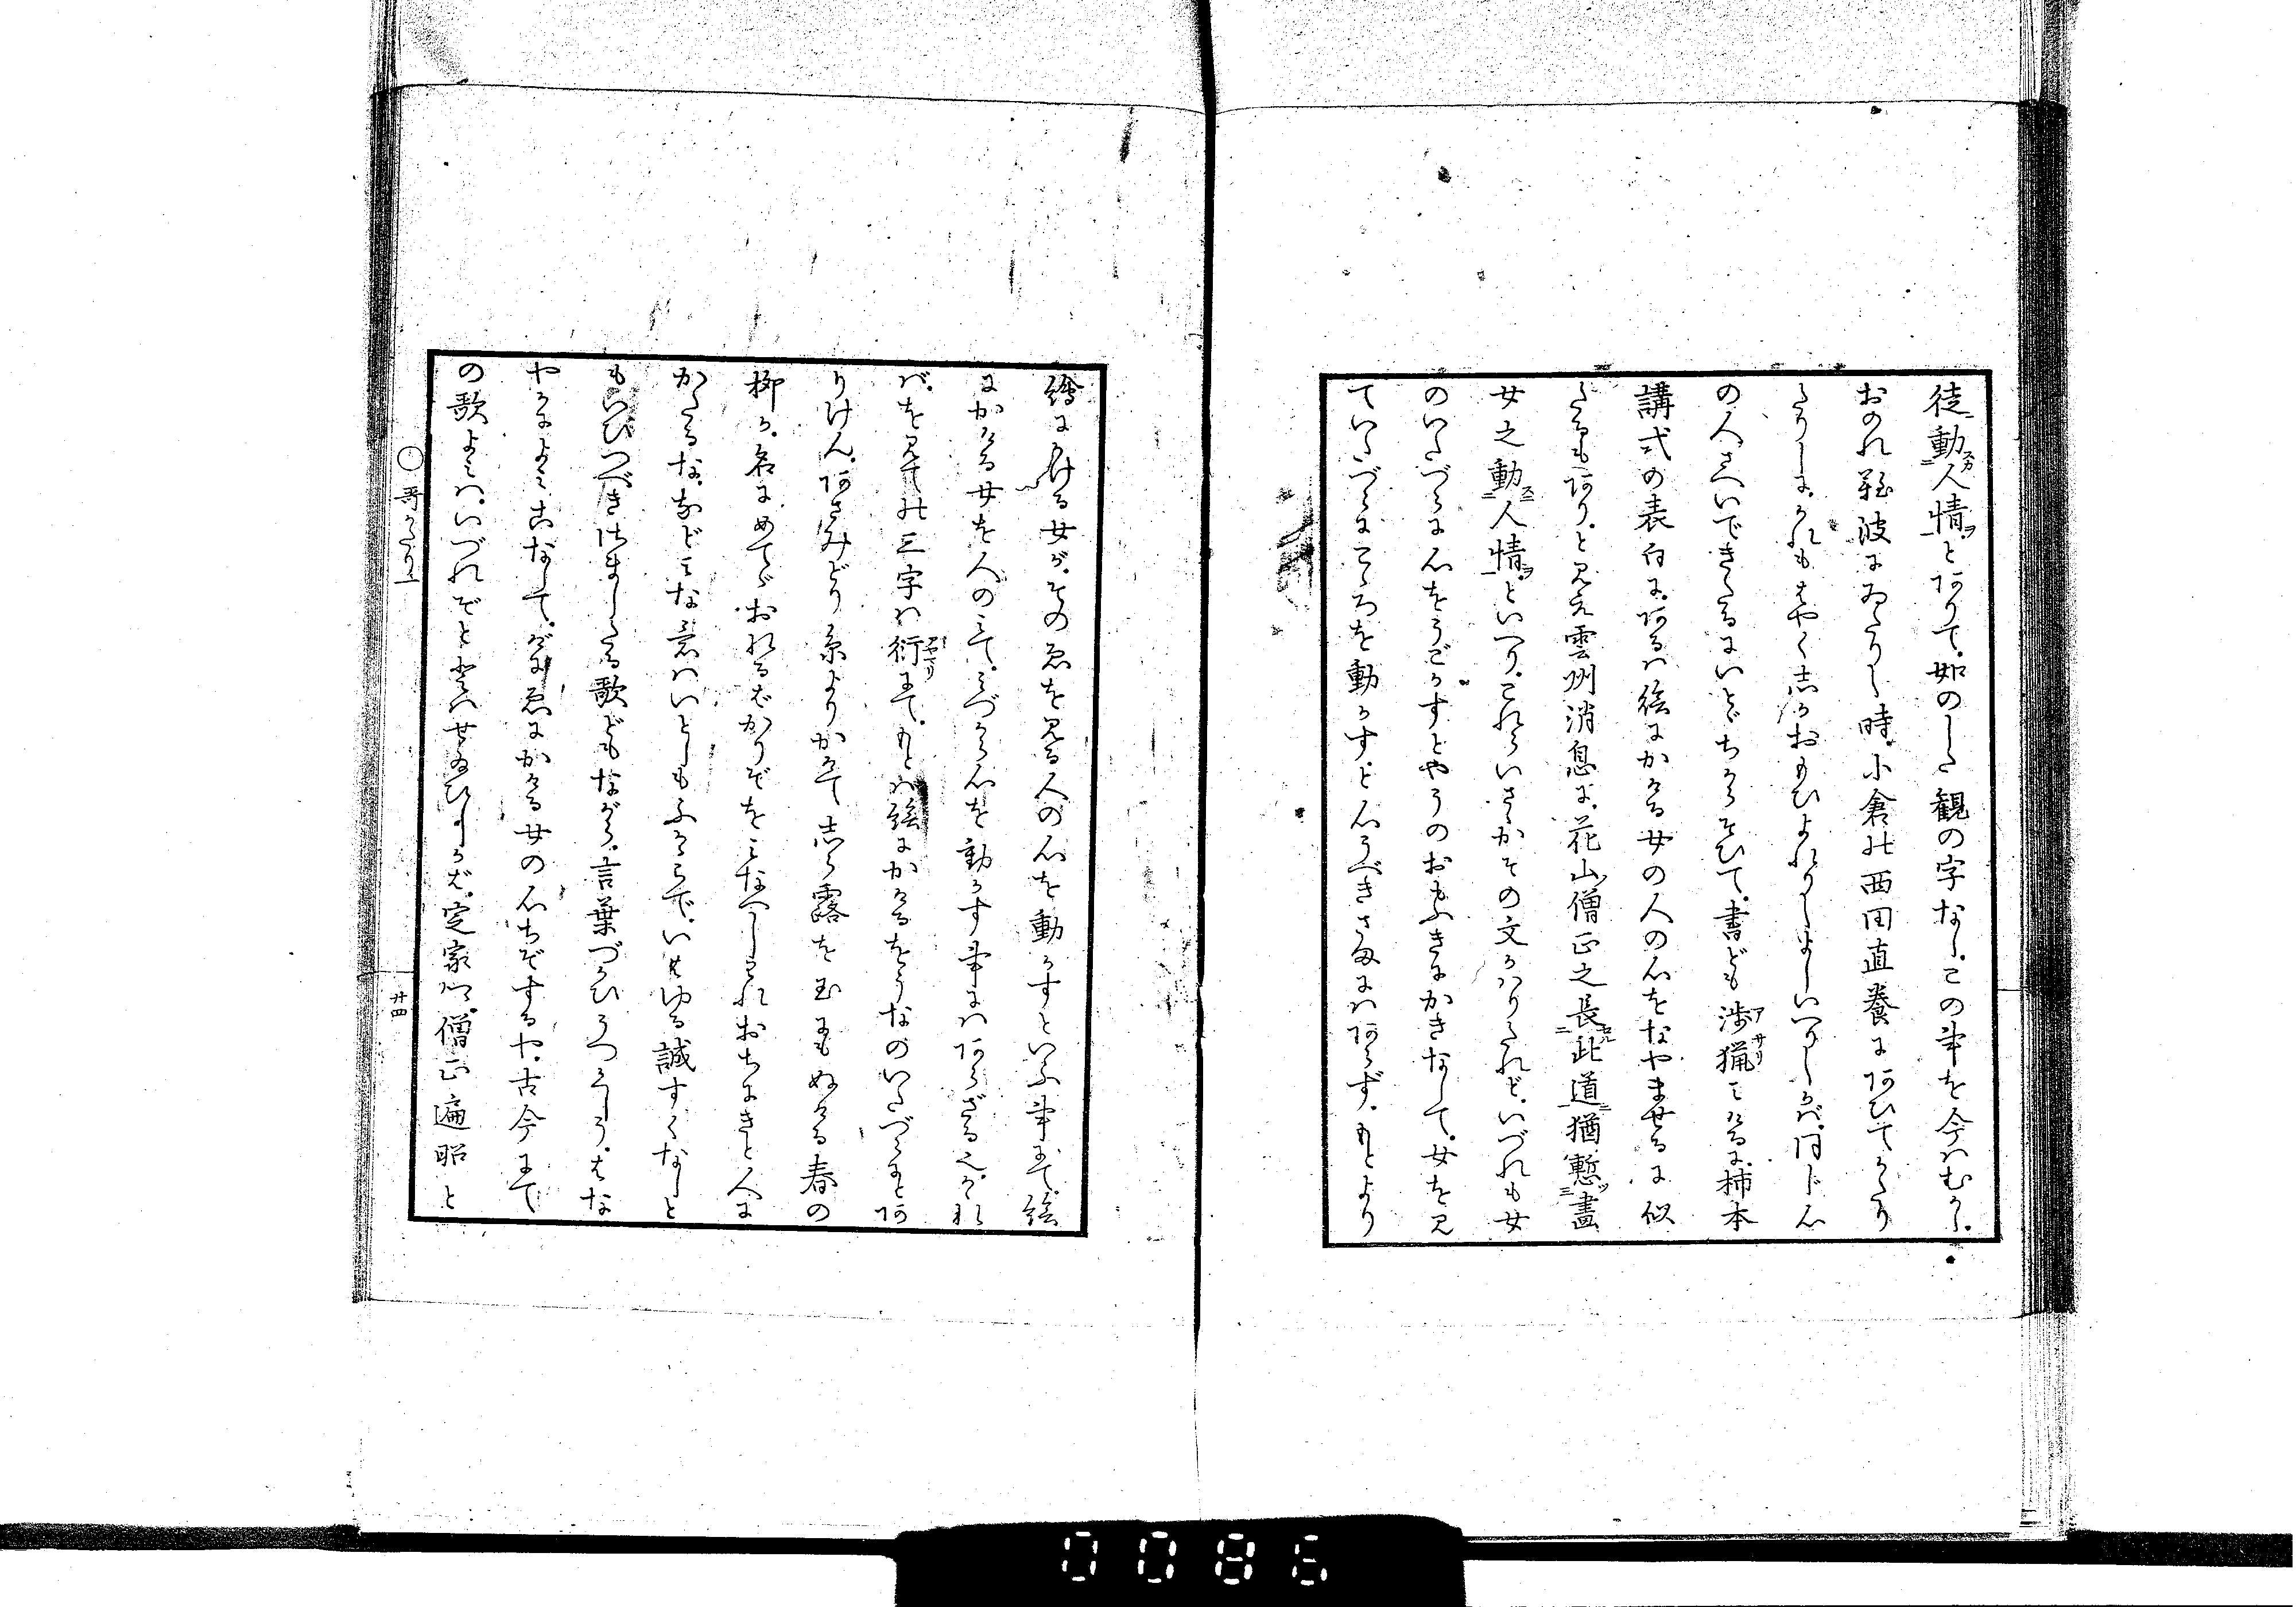 徒動人情とありて。如のした観の字なし。この事を今はむかし。
おのれ難波にゐたりし時。小倉の西田直養にあひてかたり
たりしに。かれもはやく志かおもひよれりしよしいへりしかば。同じ心
の人さへいできたるにいとゞちからそひて。書ども渉猟みけるに。柿本
講式の表白に。あるは絵にかける女の人の心をなやませるに似
たるもあり。と見え雲州消息に。花山僧正之長此道猶慙畫
女之動人情。といへり。これらいさゝかその文かはりたれど。いづれも女
のいたづらに心をうごかすとやうのおもふきにかきなして。女を見
ていたづらにこゝろを動かす。と心うべきさまにはあらず。もとより
繪にかける女が。その絵を見る人の心を動かすといふ事にて。絵
にかける女を人のみて。みづから心を動かす事にはあらざるべければ
ば。を見ての三字は衍にて。もとは絵にかけるをうなのいたづらにとあ
りけん。あさみどり糸よりかけて志ら露を玉にもぬける春の
柳か。名にめでゝおれるばかりぞをみなへしわれおちにきと人に
かたるな。などみな意はいとしもふからで。いはゆる誠すくなしと
もいひつべきさましたる歌どもながら。言葉づかひうつくしう。はな
やかによみこなして。げに絵にかける女の心ちぞするや。古今にて
の歌よみは。いづれぞととはせ給ひしかば。定家は。僧正遍昭と
哥かたり一
廿四
0086